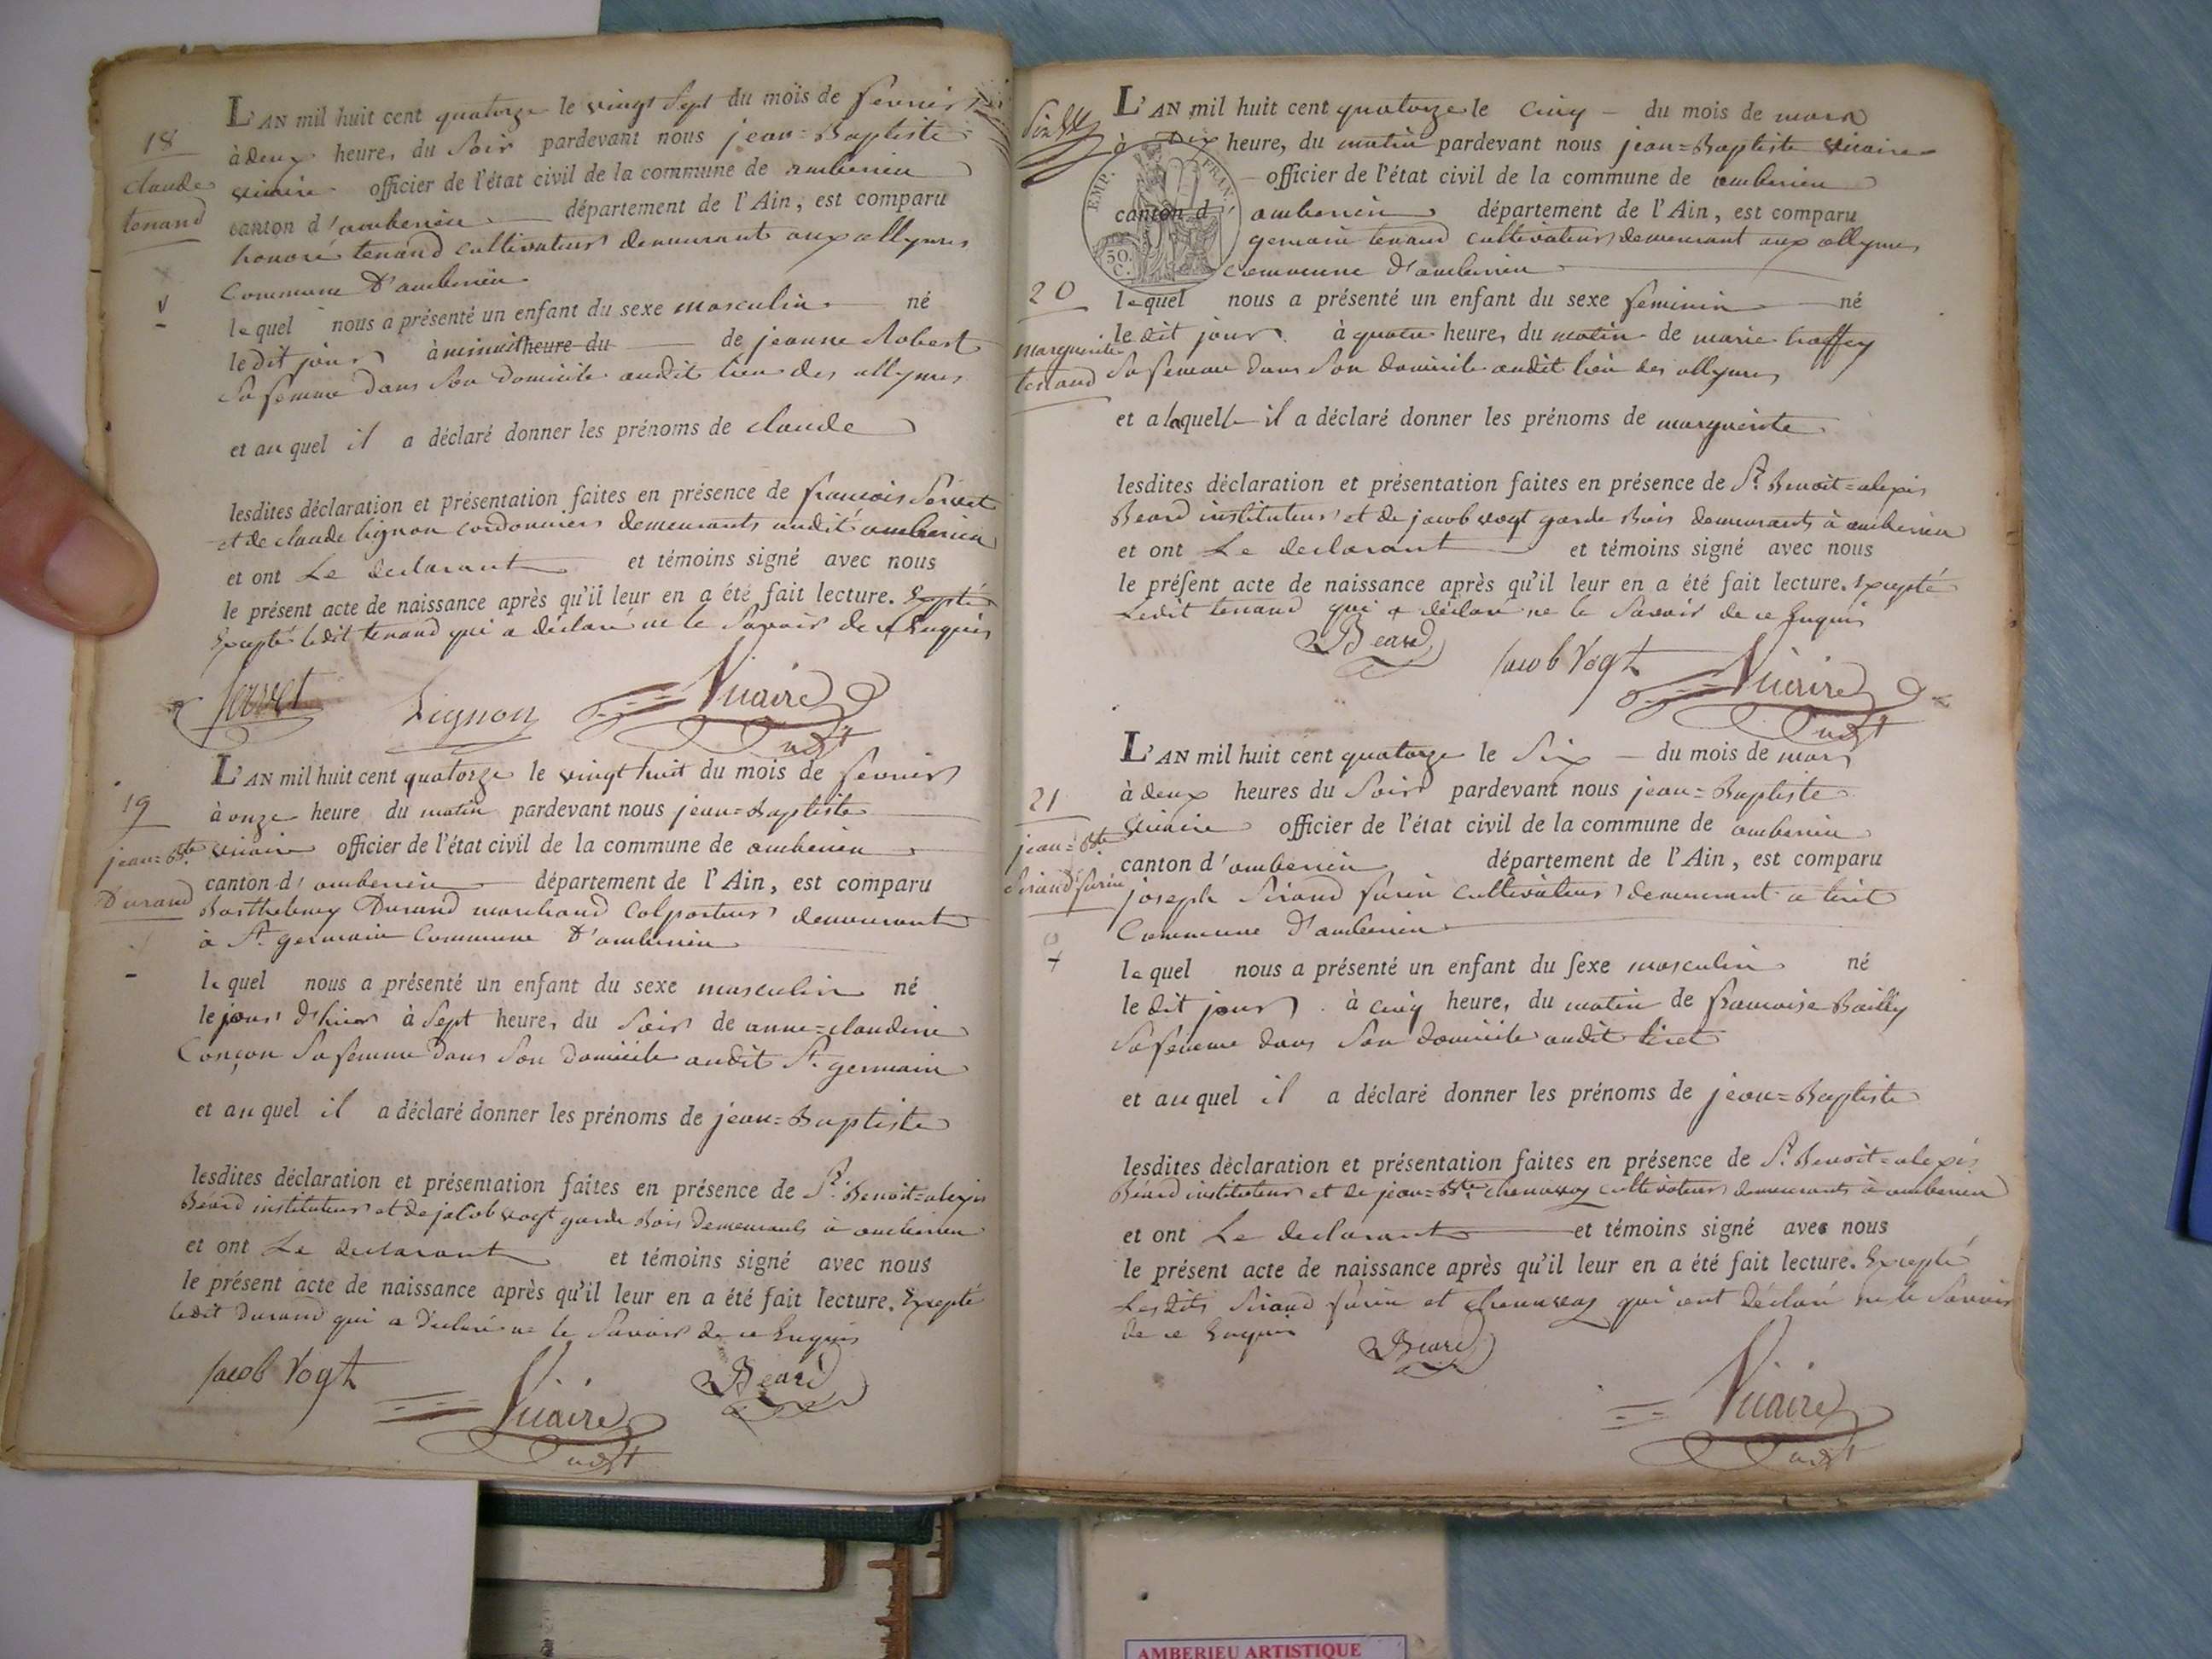 18
claude
tenand
L'AN mil huit cent quatorze le vingt sept du mois de fevrier
à deux heures du soir pardevant nous jean=Baptiste
vicaire officier de l'état civil de la commune de amberieu
canton d'amberieu département de l'Ain, est comparu
honoré tenand cultivateur demeurant aux allymes
commune d'amberieu
lequel nous a présenté un enfant du sexe masculin né
le dit jour à minuit heure du de jeanne Robert
sa femme dans son domicile audit lieu des allymes
et auquel il a déclaré donner les prénoms de claude
lesdites déclaration et présentation faites en présence de francois Servet
et de claude lignon cordonniers demeurants audit amberieu
et ont Le declarant et témoins signé avec nous
le présent acte de naissance après qu'il leur en a été fait lecture. Excepté
Excepté ledit tenand qui a déclaré ne le savoir de ce Enquis
Servet Lignon Vicaire
adjt
19
jean=Bte
Durand
L'AN mil huit cent quatorze le vingt huit du mois de fevrier
à onze heure du matin pardevant nous jean=Baptiste
vicaire officier de l'état civil de la commune de amberieu
canton d'amberieu département de l'Ain, est comparu
Barthelemy Durand marchand colporteur demeurant
à St. germain commune d'amberieu
lequel nous a présenté un enfant du sexe masculin né
le jour d'hier à sept heures du soir de anne=claudine
Conçon sa femme dans son domicile audit St. germain
et auquel il a déclaré donner les prénoms de jean=Baptiste
lesdites déclaration et présentation faites en présence de Sr. Benoit=alexis
Béard instituteur et de jacob vogt garde Bois demeurants à amberieu
et ont Le declarant et témoins signé avec nous
le présent acte de naissance après qu'il leur en a été fait lecture. Excepté
ledit Durand qui a déclaré ne le savoir de ce Enquis
jacob Vogt Vicaire Beard
adjt
L'AN mil huit cent quatorze le cinq du mois de mars
à Dix heure, du matin pardevant nous jean=Baptiste vicaire
officier de l'état civil de la commune de amberieu
EMP. FRAN.
50.
C.
canton d'amberieu département de l'Ain, est comparu
germain tenand cultivateur demeurant aux allymes
commune d'amberieu
20
marguerite
tenand
lequel nous a présenté un enfant du sexe feminin né
le dit jour à quatre heure, du matin de marie
sa femme dans son domicile audit lieu des allymes
et a laquelle il a déclaré donner les prénoms de marguerite
lesdites déclaration et présentation faites en présence de Sr. Benoit=alexis
Beard instituteur et de jacob vogt garde Bois demeurants à amberieu
et ont Le declarant et témoins signé avec nous
le présent acte de naissance après qu'il leur en a été fait lecture. Excepté
Ledit tenand qui a déclaré ne le savoir de ce Enquis
Beard jacob Vogt Vicaire
adjt
21
jean=Bte
Sirand furin
L'AN mil huit cent quatorze le Six du mois de mars
à deux heures du soir pardevant nous jean=Baptiste
vicaire officier de l'état civil de la commune de amberieu
canton d'amberieu département de l'Ain, est comparu
joseph Sirand furin cultivateur demeurant a tiret
commune d'amberieu
lequel nous a présenté un enfant du sexe masculin né
le dit jour à cinq heure, du matin de francoise Bailly
sa femme dans son domicile audit tiret
et auquel il a déclaré donner les prénoms de jean=Baptiste
lesdites déclaration et présentation faites en présence de Sr. Benoit=alexis
Béard instituteur et de jean=Bte. chenavas cultivateur demeurants à amberieu
et ont Le declarant et témoins signé avec nous
le présent acte de naissance après qu'il leur en a été fait lecture. Excepté
Lesdits Sirand furin et chenavas qui ont déclaré ne le savoir
de ce Enquis
Beard Vicaire
adjt
AMBERIEU ARTISTIQUE